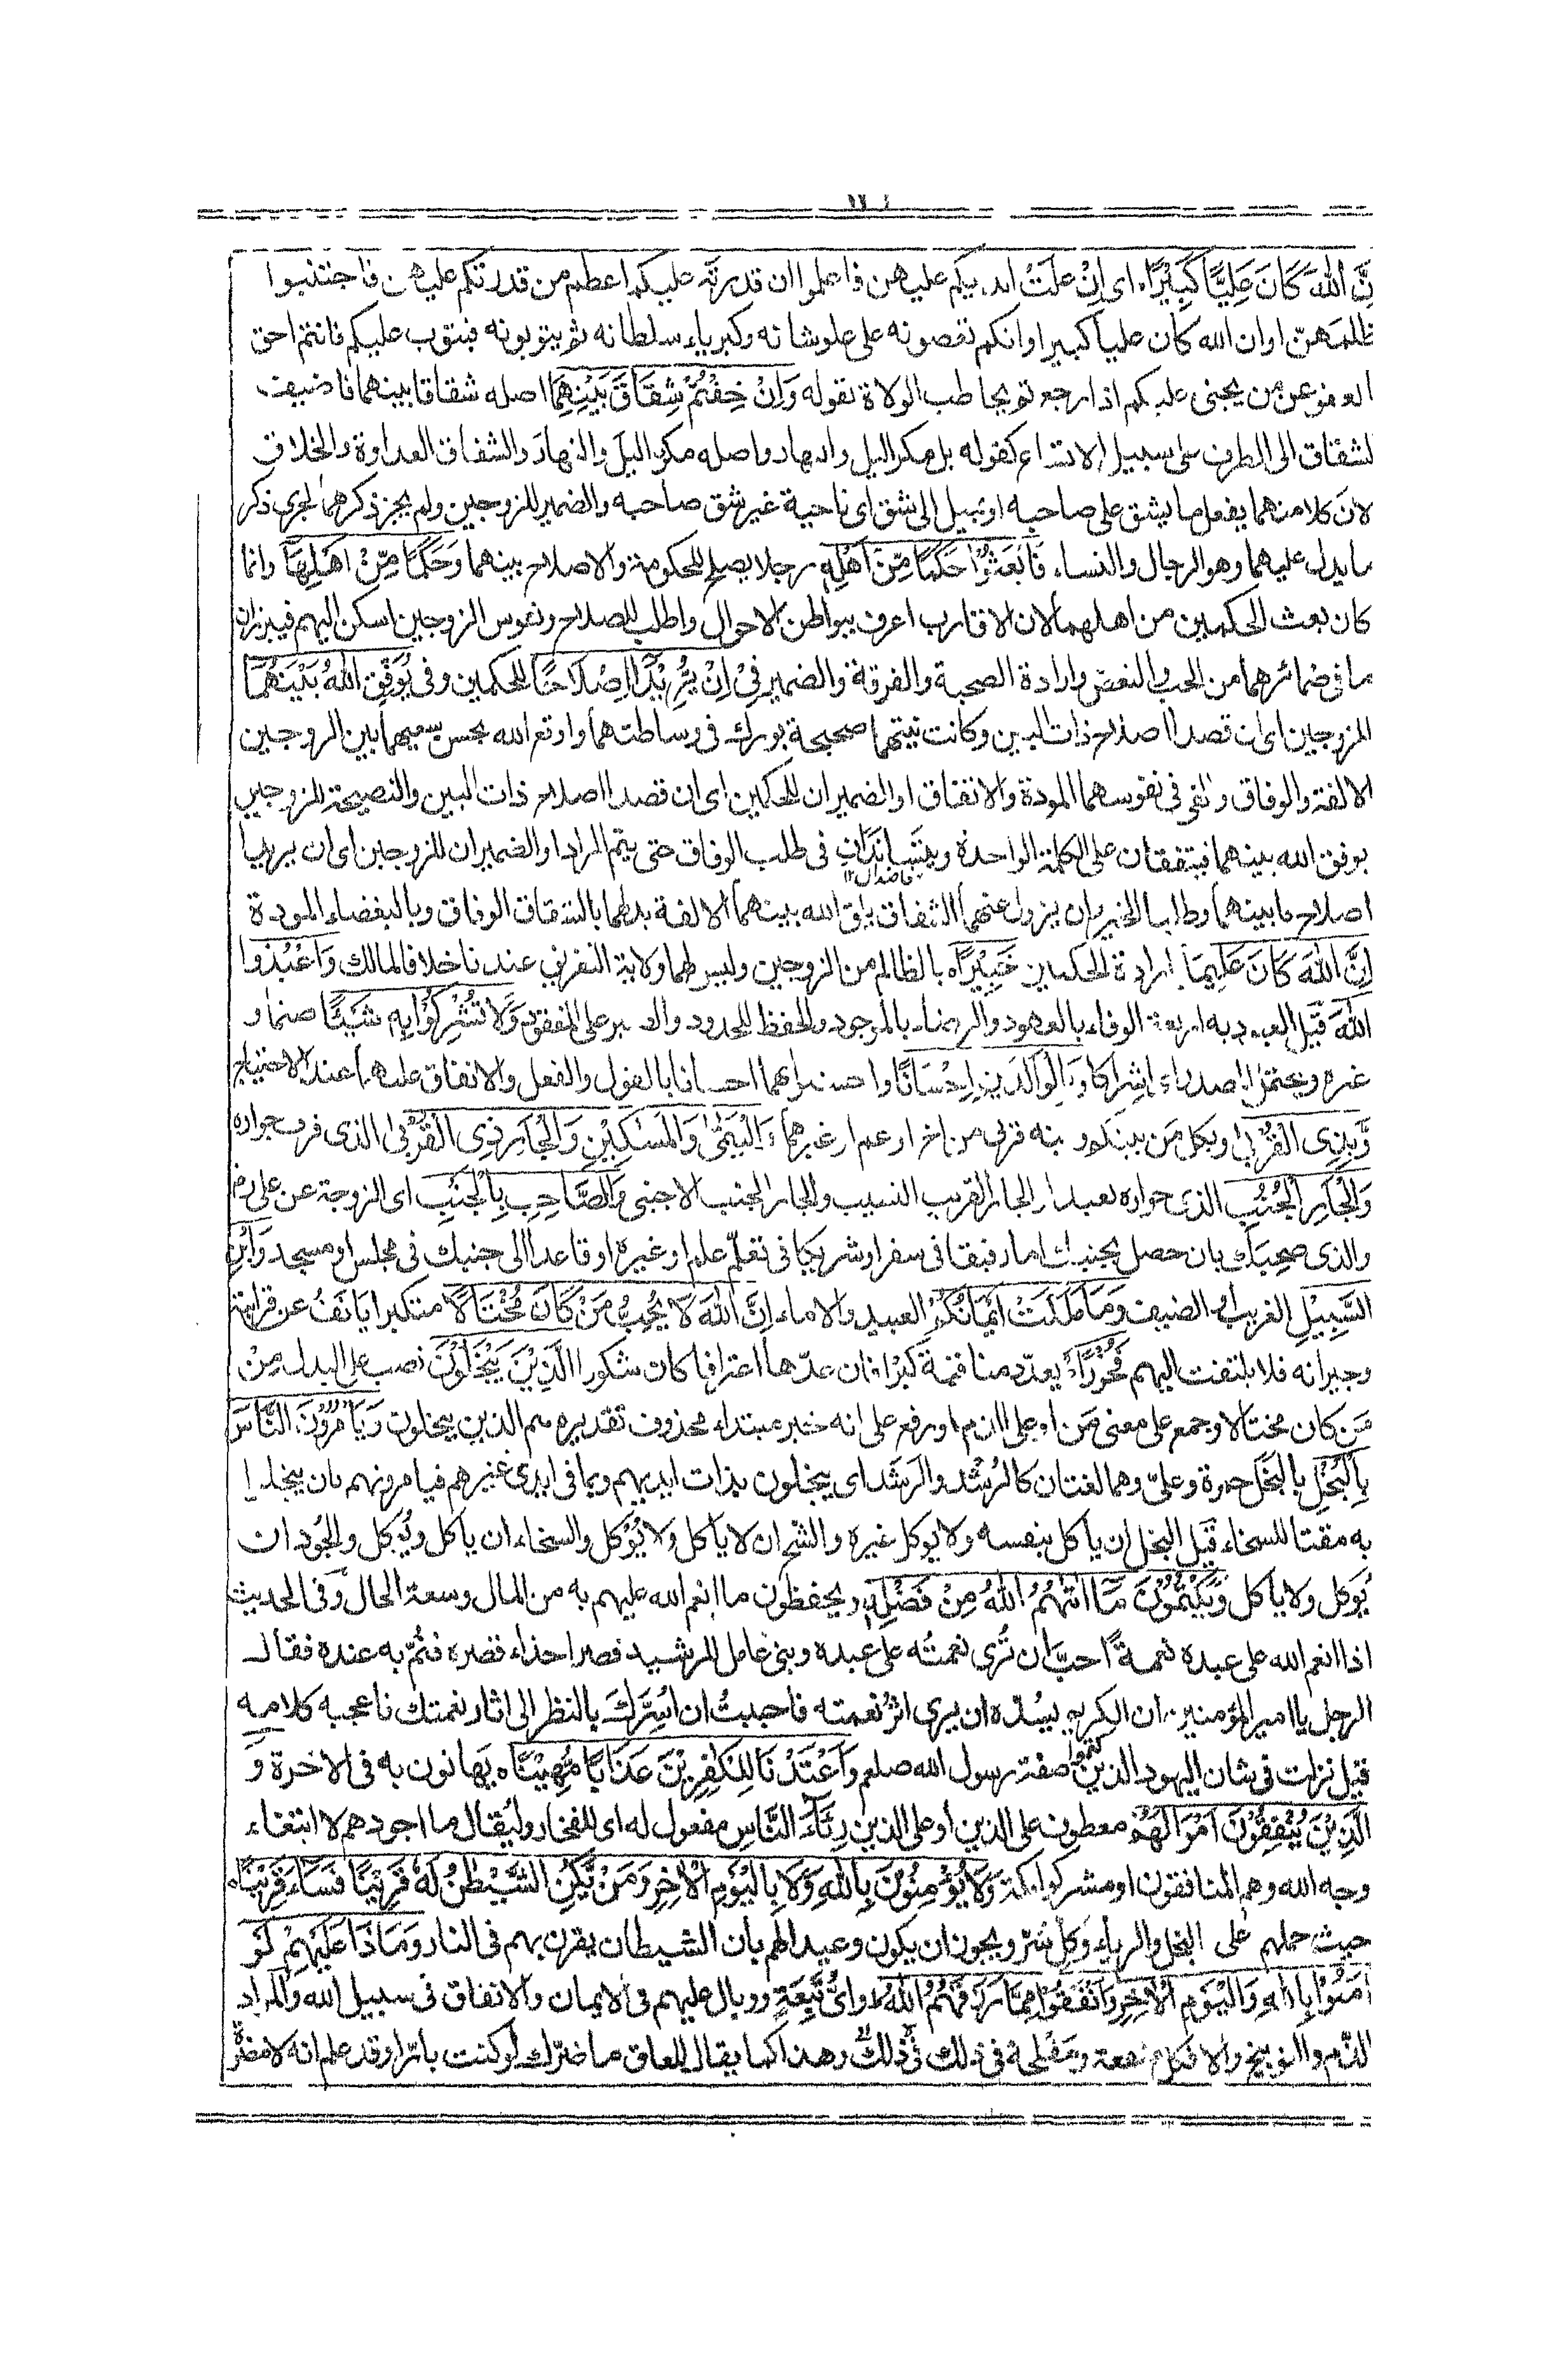 نَّ اللّٰهَ كَانَ عَلِيًّا كَبِيْرًاه اى اِنْ عَلَتْ ايديكم عليهن فاعلموا ان قدرته عليكم اعظم من قدرتكم عليهن فاجتنبوا
ظلمهن او ان الله كان عليا كبيرا وانكم تعصونه على علو شانه وكبرياء سلطانه ثم يتوبونه فيتوب عليكم فانتم احق
العفو عن من يجنى عليكم اذا رجع ثم يخاطب الولاة بقوله وَاِنْ خِفْتُمْ شِقَاقَ بَيْنِهِمَا اصله شقاقا بينهما فاضيف
لشقاق الى الظرف على سبيل الاتساع كقوله بل مكر اليل والنهار واصله مكر اليلَ والنهارَ والشقاق العداوة والخلاف
لان كلا منهما يفعل ما يشق على صاحبه او يميل الى شق اى ناحية غير شق صاحبه والضمير للزوجين ولم يجز ذكرهما لجرى ذكر
ما يدل عليهما وهو الرجال والنساء فَابْعَثُوْا حَكَمًا مِّنْ اَهْلِهٖ رجلا يصلح للحكومة والاصلاح بينهما وَحَكَمًا مِّنْ اَهْلِهَا وانما
كان بعث الحكمين من اهلهما لان الاقارب اعرف ببواطن الاحوال واطلب للصلاح ونفوس الزوجين اسكن اليهم فيبرزان
ما فى ضمائرهما من الحب والبغض وارادة الصحبة والفرقة والضمير فى اِنْ يُّرِيْدَآ اِصْلَاحًا للحكمين وفى يُوَفِّقِ اللّٰهُ بَيْنَهُمَا
للزوجين اى ان قصدا اصلاح ذات البين وكانت نيتهما صحيحة بورك فى وساطتهما واوقع الله بحسن سعيهما بين الزوجين
الالفة والوفاق والقى فى نفوسهما المودة والاتفاق او الضميران للحكمين اى ان قصدا اصلاح ذات البين والنصيحة للزوجين
يوفق الله بينهما فيتفقان على الكلمة الواحدة ويتساندان فى طلب الوفاق حتى يتم المراد او الضميران للزوجين اى ان يريدا
اصلاح ما بينهما وطلبا الخير وان يزول عنهما الشقاق يلق الله بينهما الالفة بدلهما بالشقاق الوفاق وبالبغضاء المودة
اِنَّ اللّٰهَ كَانَ عَلِيْمًا بارادة الحكمين خَبِيْرًاه بالظالم من الزوجين وليس لهما ولاية التفريق عندنا خلافا لمالك وَاعْبُدُوا
اللّٰهَ قيل العبودية اربعة الوفاء بالعهود والرضاء بالموجود والحفظ للحدود والصبر على المفقود وَلَا تُشْرِكُوْا بِهٖ شَيْئًا صنما و
غيره ويحتمل المصدر اى اشراكا وَبِالْوَالِدَيْنِ اِحْسَانًا واحسنوا بهما احسانا بالقول والفعل والانفاق عليهما عند الاحتياج
وَّبِذِى الْقُرْبٰى وبكل من بينكم وبينه قربى من اخ او عم او غيرهما وَالْيَتٰمٰى وَالْمَسٰكِيْنِ وَالْجَارِ ذِى الْقُرْبٰى الذى قرب جواره
وَالْجَارِ الْجُنُبِ الذى جواره بعيد او الجار القريب النسيب والجار الجنب الاجنبى وَالصَّاحِبِ بِالْجَنْۢبِ اى الزوجة عن على رض
والذى صحبك بان حصل بجنبك اما رفيقا فى سفر او شريكا فى تعلم علم او غيره او قاعدا الى جنبك فى مجلس او مسجد وَابْنِ
السَّبِيْلِ الغريب او الضيف وَمَا مَلَكَتْ اَيْمَانُكُمْ العبيد والاماء اِنَّ اللّٰهَ لَا يُحِبُّ مَنْ كَانَ مُخْتَالًا متكبرا يانف عن قرابته
وجيرانه فلا يلتفت اليهم فَخُوْرًا يعدد مناقبه كبرا فان عدها اعترافا كان شكورا الَّذِيْنَ يَبْخَلُوْنَ نصب على البدل مِنْ
مَن كان مختالا وجمع على معنى مَن او على الذم او رفع على انه خبر مبتداء محذوف تقديره هم الذين يبخلون وَيَاْمُرُوْنَ النَّاسَ
بِالْبُخْلِ بالبَخَل حمزة وعلىّ وهما لغتان كالرُشْد والرَشَد اى يبخلون بذات ايديهم وبما فى ايدى غيرهم فيامرونهم بان يبخلوا
به مقتا للسخاء قيل البخل ان ياكل بنفسه ولا يوكل غيره والشح ان لا ياكل ولا يُؤكل والسخاء ان ياكل ويُوكل والجُود ان
يُوكل ولا ياكل وَيَكْتُمُوْنَ مَآ اٰتٰهُمُ اللّٰهُ مِنْ فَضْلِهٖ ويحفظون ما انعم الله عليهم به من المال وسعة الحال وفى الحديث
اذا انعم الله على عبده نعمةً احبّ ان تُرى نعمتُه على عبده وبنى عامل للرشيد قصرا حذاء قصره فنُمّ به عنده فقال
الرجل يا امير المؤمنين ان الكريم يسُرّه ان يرى اثرُ نعمته فاحببتُ ان اسُرَّكَ بالنظر الى اثار نعمتك فاعجبه كلامه
قيل نزلت فى شان اليهود الذين كتموا صفة رسول الله صلعم وَاَعْتَدْنَا لِلْكٰفِرِيْنَ عَذَابًا مُّهِيْنًاه يهانون به فى الاخرة وَ
الَّذِيْنَ يُنْفِقُوْنَ اَمْوَالَهُمْ معطوف على الذين او على الذين رِئَآءَ النَّاسِ مفعول له اى للفخار وليُقال ما اجودهم لا ابتغاء
وجه الله وهم المنافقون او مشركوا مكة وَلَا يُؤْمِنُوْنَ بِاللّٰهِ وَلَا بِالْيَوْمِ الْاٰخِرِ وَمَنْ يَّكُنِ الشَّيْطٰنُ لَهٗ قَرِيْنًا فَسَآءَ قَرِيْنًاه
حيث حملهم على البخل والرياء وكل شرّ ويجوز ان يكون وعيدا لهم بان الشيطان يقرن بهم فى النار وَمَاذَا عَلَيْهِمْ لَوْ
اٰمَنُوْا بِاللّٰهِ وَالْيَوْمِ الْاٰخِرِ وَاَنْفَقُوْا مِمَّا رَزَقَهُمُ اللّٰهُ واىُّ تَبِعَةٍ ووبال عليهم فى الايمان والانفاق فى سبيل الله والمراد
الذم والتوبيخ والا فكل منفعة ومَفْلحة فى ذلك وهذا كما يقال للعاق ما ضرّك لو كنت بارّا وقد علم انه لا مضرّ